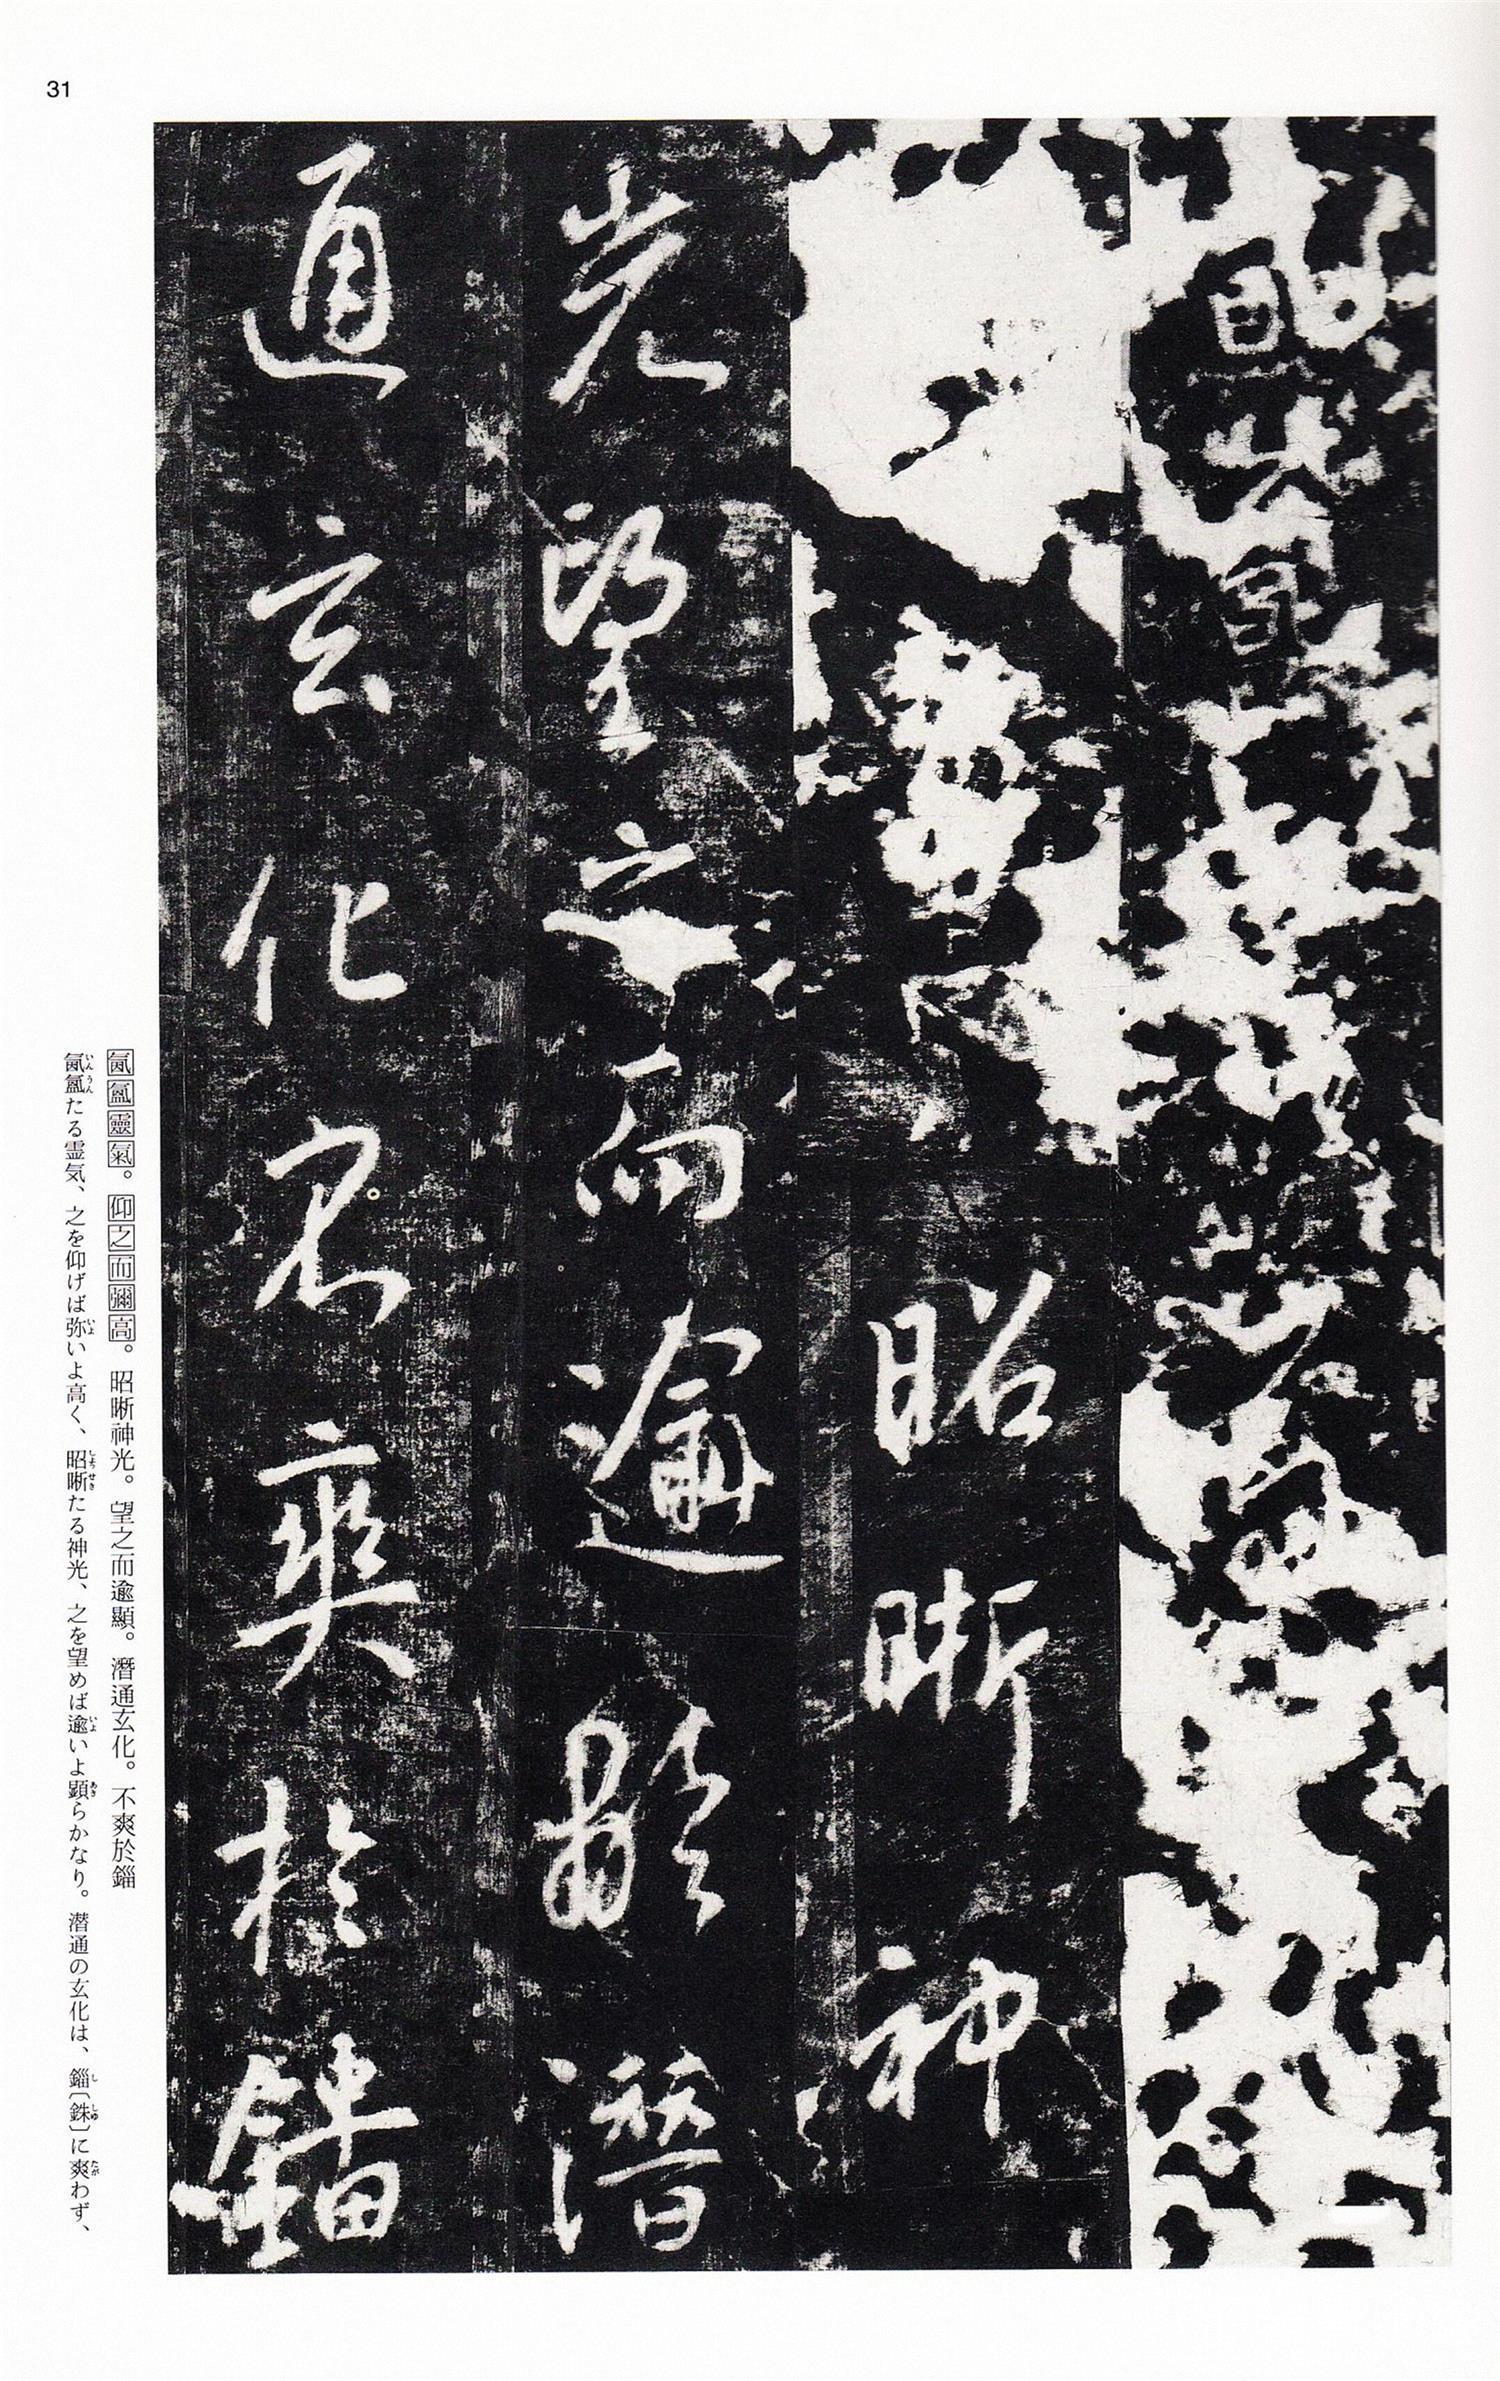 31
昭晣神
光望之而逾顯潛
通玄化不爽於錙
氤氳靈氣。仰之而彌高。昭晣神光。望之而逾顯。潛通玄化。不爽於錙
氤氳たる霊気、之を仰げば弥いよ高く、昭晣たる神光、之を望めば逾いよ顕らかなり。潜通の玄化は、錙〔銖〕に爽わず、